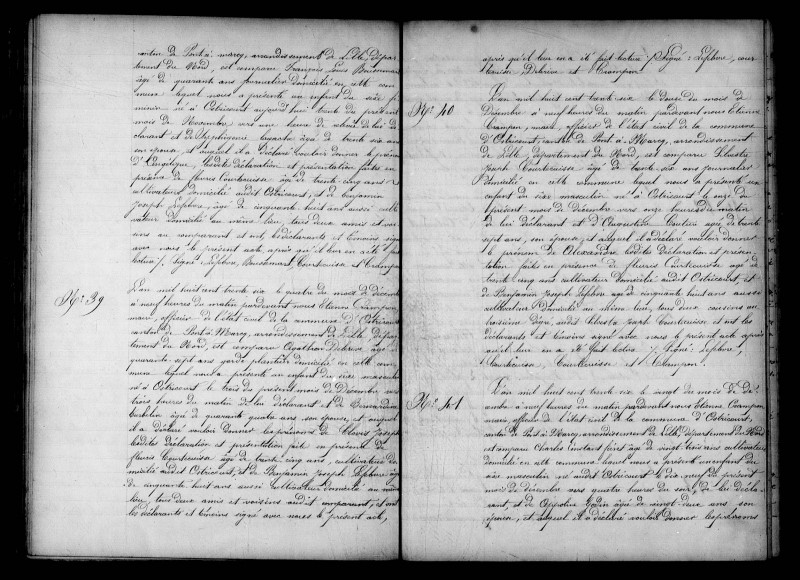 canton de Pont à marcq, arrondissement de Lille, dépar-
tement du Nord, est comparu François Louis
âgé de quarante ans journalier domicilié en cette com-
mune lequel nous a présenté un enfant du sexe fé-
minin né à Ostricourt aujourd'hui trente du présent
mois de Novembre vers une heure de relevée de lui dé-
clarant et de âgée de trente six ans
son épouse, et auquel il a déclaré vouloir donner le prénom
d'Angélique, lesdites déclaration et présentation faites en
présence de fleuris Courtecuisse âgé de trente cinq ans
cultivateur domicilié audit Ostricourt, et de Benjamin
Joseph Lefebvre, âgé de cinquante huit ans aussi culti-
vateur domicilié au même lieu, tous deux amis et voi-
sins au comparant et ont, les déclarants et témoins signé
avec nous le présent acte, après qu'il leur en a été fait
lecture. Signé Lefebvre, Courtecuisse et Crampon
N.o 39
L'an mil huit cent trente six le quatre du mois de décembre
à neuf heures du matin pardevant nous Etienne Crampon,
maire, officier de l'état civil de la commune d'Ostricourt
canton de Pont à Marcq, arrondissement de Lille, dépar-
tement du Nord, est comparu Agathon Delerue âgé de
quarante sept ans garde domicilié en cette com-
mune lequel nous a présenté un enfant du sexe masculin
né à Ostricourt le trois du présent mois de Décembre vers
trois heures du matin de lui déclarant et de Bernardine
âgée de quarante quatre ans son épouse, et auquel
il a déclaré vouloir donner les prénoms de Joseph
lesdites déclaration et présentation faites en présence de
fleuris Courtecuisse âgé de trente cinq ans, cultivateur do-
micilié audit Ostricourt, et de Benjamin Joseph Lefebvre âgé
de cinquante huit ans aussi cultivateur domicilié au même
lieu, tous deux amis et voisins audit comparant, et ont
les déclarants et témoins signé avec nous le présent acte,
après qu'il leur en a été fait lecture. Signé : Lefebvre, Cour-
tecuisse Delerue et Crampon.
N.o 40
L'an mil huit cent trente six le douze du mois de
Décembre à neuf heures du matin pardevant nous Etienne
Crampon, maire, officier de l'état civil de la commune
d'Ostricourt, canton de Pont à Marcq, arrondissement
de Lille, département du Nord, est comparu
Joseph Courtecuisse âgé de trente six ans journalier
domicilié en cette commune lequel nous a présenté un
enfant du sexe masculin né à Ostricourt le onze du
présent mois de Décembre vers onze heures du matin
de lui déclarant et d'Augustine âgée de trente
sept ans, son épouse, et auquel il a déclaré vouloir donner
le prénom de Alexandre lesdites Déclaration et présen-
tation faites en présence de fleuris Courtecuisse âgé de
trente cinq ans cultivateur domicilié audit Ostricourt, et
de Benjamin Joseph Lefebvre âgé de cinquante huit ans aussi
cultivateur Domicilié au même lieu, tous deux cousins ou
voisins audit Joseph Courtecuisse et ont les
déclarants et témoins signé avec nous le présent acte après
qu'il leur en a été fait lecture. Signé : Lefebvre,
Courtecuisse, Courtecuisse et Crampon.
N.o 41
L'an mil huit cent trente six le vingt du mois de dé-
cembre à neuf heures du matin pardevant nous Etienne Crampon,
maire, officier de l'état civil de la commune d'Ostricourt,
canton de Pont à Marcq, arrondissement de Lille, département du Nord
est comparu Charles Constant âgé de vingt trois ans cultivateur
domicilié en cette commune lequel nous a présenté un enfant du
sexe masculin né audit Ostricourt le dix neuf du présent
mois de décembre vers quatre heures du soir, de lui décla-
rant, et de âgée de vingt deux ans son
épouse, et auquel il a déclaré vouloir donner les prénoms